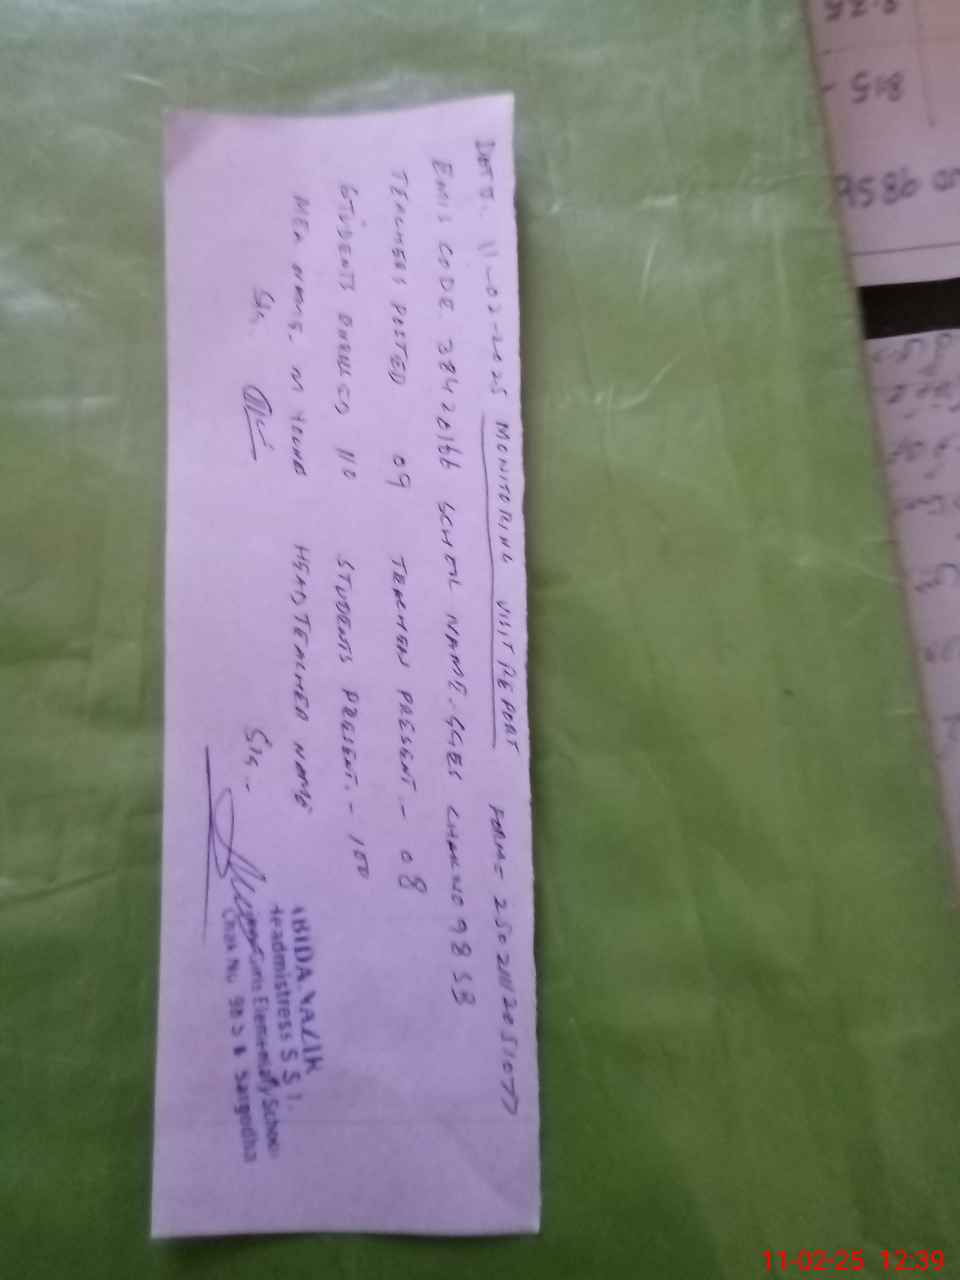 DATE. 11-02-2025 MONITORING VISIT REPORT FORM= 25021112051077
EMIS CODE 38420166 SCHOOL NAME. GGES CHAK NO 98 SB
TEACHERS POSTED 09 TEACHER PRESENT.- 08
STUDENTS ENROLLED 110 STUDENTS PRESENT.- 100
MEA NAME. M YOUNAS HEAD TEACHER NAME
Sig. Sig-
ABIDA MALIK
Headmistress S S T.
Girls Elementary School
Chak No. 98 S B Sargodha
815
9586
11-02-25 12:39